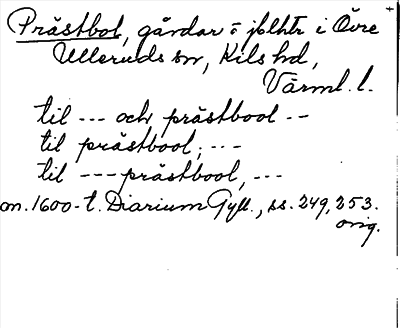 Prästbol, gårdar o jblhtr i Övre
Ulleruds sn, Kils hd,
Värml. l.
til --- och prästbool --
til prästbool, ---
til --- prästbool, ---
om. 1600-t. Diarium Gyll., ss. 249, 253.
orig.